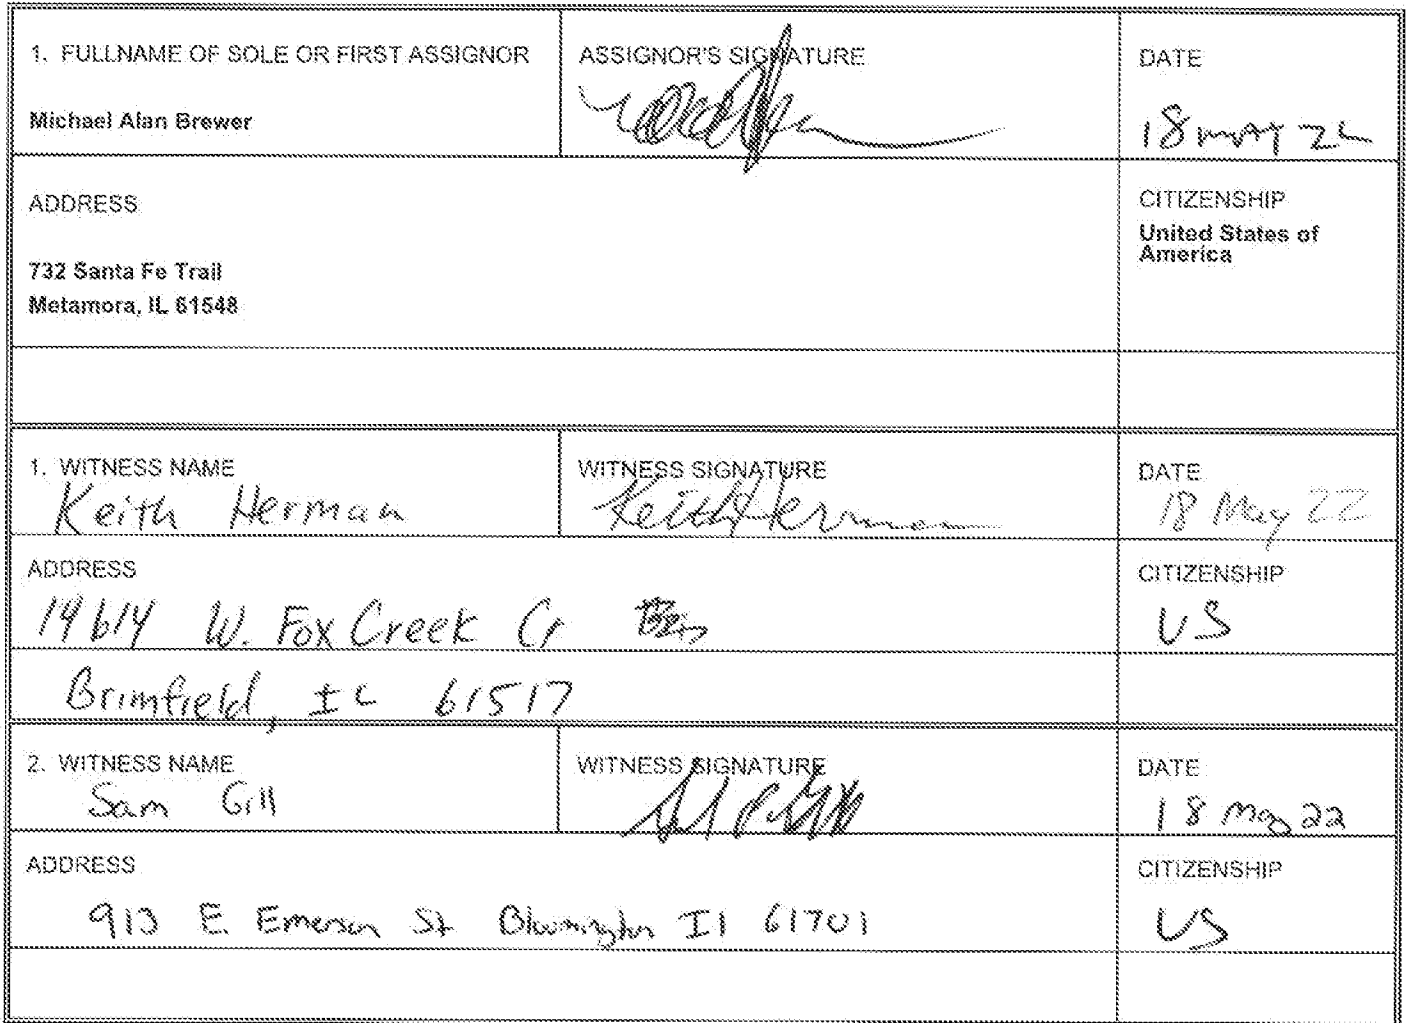 1. FULLNAME OF SOLE OR FIRST ASSIGNOR
Michael Alan Brewer
ASSIGNOR'S SIGNATURE
DATE
18 MAY 22
ADDRESS
732 Santa Fe Trail
Metamora, IL 61548
CITIZENSHIP
United States of
America
1. WITNESS NAME
Keith Herman
WITNESS SIGNATURE
Keith Herman
DATE
18 May 22
ADDRESS
19614 W. Fox Creek Cr
Brimfield, IL 61517
CITIZENSHIP
US
2. WITNESS NAME
Sam Gill
WITNESS SIGNATURE
DATE
18 May 22
ADDRESS
913 E. Emerson St Bloomington Il 61701
CITIZENSHIP
US